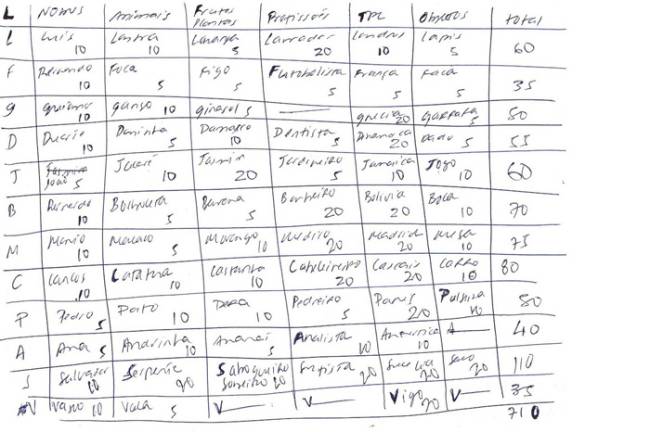 L Nomes Animais Frutos Plantas Profissões TPL Objetos total
L Luís 10 Lontra 10 Laranja 5 Lavrador 20 Londres 10 Lapis 5 60
F 10 Foca 5 Figo 5 Futebolista 5 França 5 Faca 5 35
g 10 ganso 10 girasol 5 — grecia 20 Garrafa 5 50
D Duarte 10 Doninha 5 Damasco 10 Dentista 5 Dinamarca 20 Dado 5 55
J João 5 Javali 10 Jasmin 20 Jardineiro 5 Jamaica 10 Jogo 10 60
B Bernardo 10 Borboleta 5 Banana 5 Banheiro 20 Bolivia 20 Bola 10 70
M Mário 10 Macaco 5 Morango 10 Medico 20 Madrid 20 Mesa 10 75
C Carlos 10 Catatua 10 Castanha 10 Cabeleireiro 20 Cascais 20 Carro 10 80
P Pedro 5 Pato 10 Pera 10 Pedreiro 5 Paris 20 Pulseira 10 50
A Ana 5 Andorinha 10 Ananás 5 Analista 10 America 10 A — 40
S Salvador 10 Serpente 20 20 20 Suecia 20 Saco 20 110
V Vasco 10 Vaca 5 V — V — Vigo 20 V — 35
710